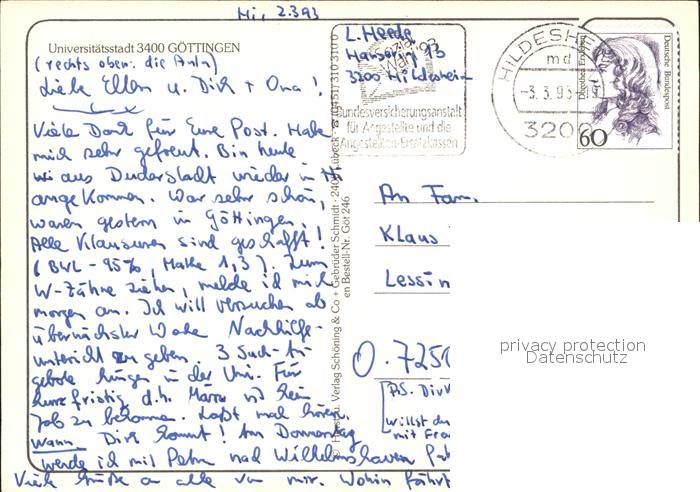 Hi, 2.3.93
Universitätsstadt 3400 GÖTTINGEN
(rechts oben: die Anln)
Liebe Ellen u. Dirk + Oma!
Viele Dank für Eure Post. Habe
mich sehr gefreut. Bin heute
wi aus Duderstadt wieder in Hi
angekommen. War sehr schön,
waren gestern in Göttingen.
Alle Klausuren sind geschafft!
(BWL - 95%, Mathe 1,3). Zum
W-Zähne ziehen, melde ich mich
morgen an. Ich will versuchen ab
übernächster Woche Nachhilfe-
unterricht zu geben. 3 Such-An
gebote hängen in der Uni. Für
kurzfristig, d.h. März ist kein
Job zu bekommen. Laßt mal hören,
wann Dirk kommt! Am Donnerstag
werde ich mit Petra nach Wilhelmshaven
Viele Grüße an alle von mir. Wohin fährt
L. Heede
Hansering 13
3200 Hildesheim
Bundesversicherungsanstalt
für Angestellte und die
Angestellten-Ersatzkassen
HILDESHEIM
md
-3.3.93-19
3200
Deutsche Bundespost
60
© Hansa. Verlag Schöning & Co + Gebrüder Schmidt · 2400 Lübeck · ☎ (0451) 310 310
en Bestell-Nr. Göt 246
An Fam.
Klaus
Lessin
O. 7250
PS. Dirk
willst du
mit Frau
privacy protection
Datenschutz